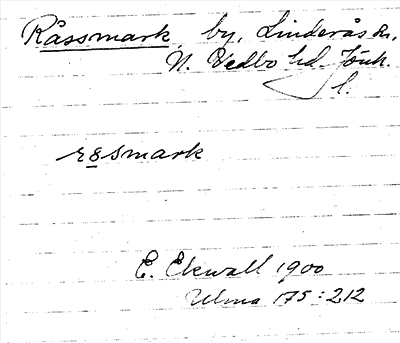 Råssmark, by, Linderås sn,
N. Vedbo hd. Jönk.
l.
rɞsmark
E. Ekwall 1900
Ulma 175:212